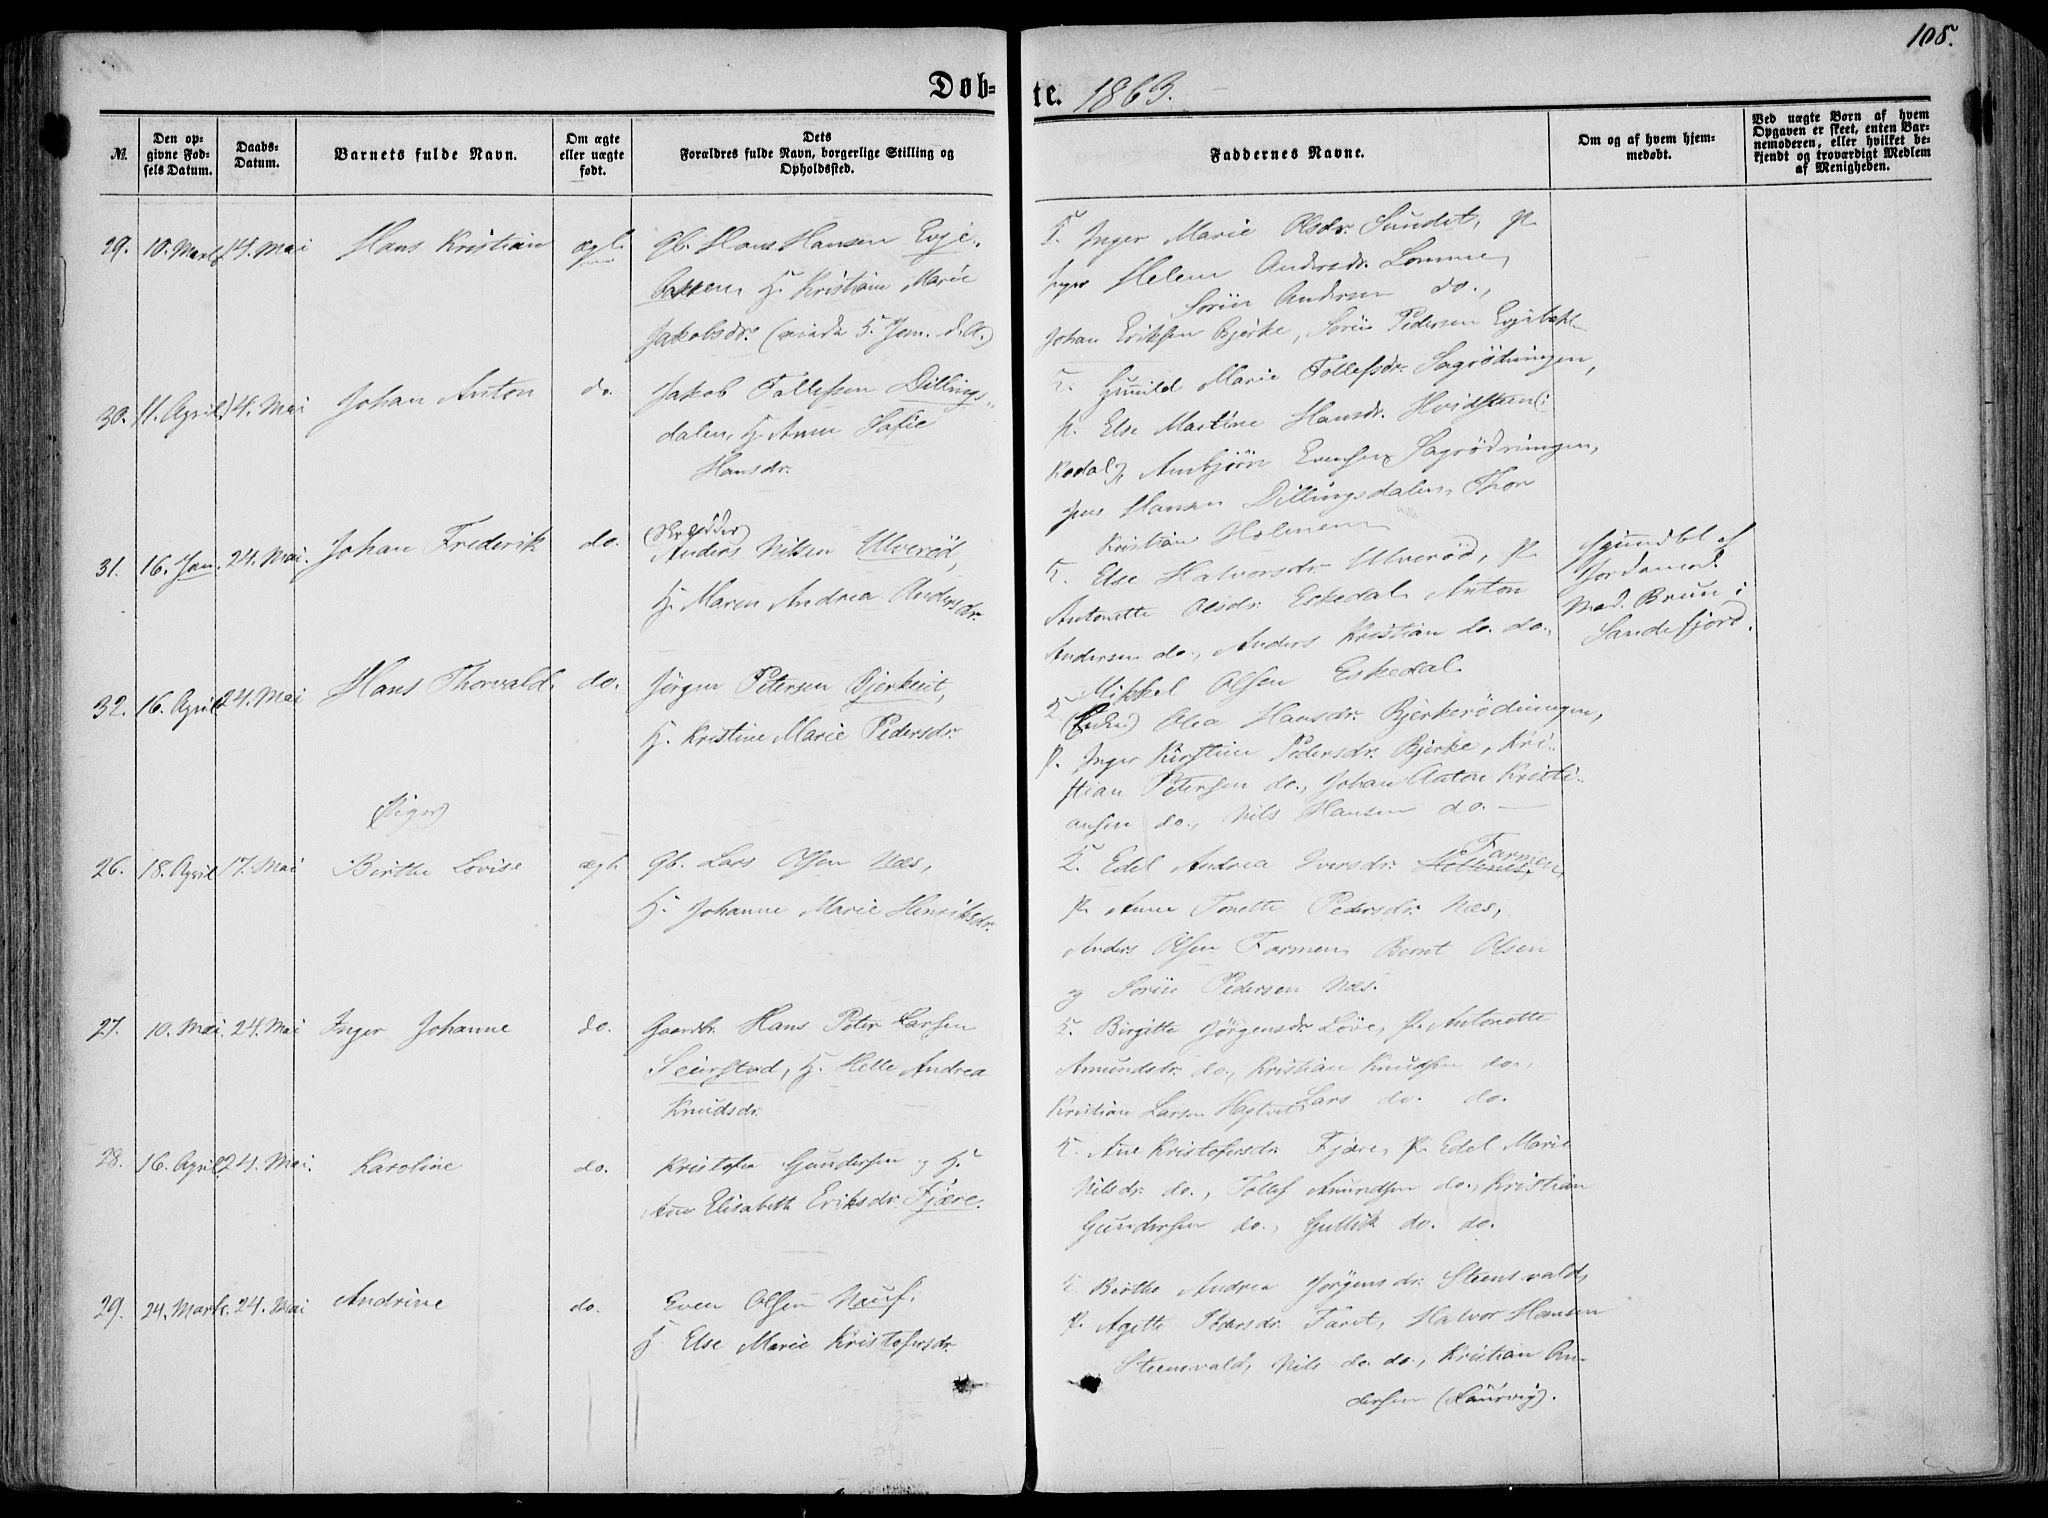 108.
Døb- te. 1863.
№.
Den op-
givne Fød-
sels Datum.
Daabs-
Datum.
Barnets fulde Navn.
Om ægte
eller uægte
født.
Dets
Forældres fulde Navn, borgerlige Stilling og
Opholdssted.
Faddernes Navne.
Om og af hvem hjem-
medøbt.
Ved uægte Børn af hvem
Opgaven er skeet, enten Bar-
nemoderen, eller hvilket be-
kjendt og troværdigt Medlem
af Menigheden.
29. 10. Marts 14. Mai Hans Kristian ægte Gb. Hans Hansen Evje-
bakken, H. Kristiane Marie
Jakobsdr. (viede 5. Jan. d. A.)
F. Inger Marie Olsdr. Sundet, P.
Helene Andersdr. Lomme,
Sørin Andersen do.,
Johan Eriksen Bjerke, Sørin Pedersen
30. 11. April 14. Mai Johan Anton do. Jakob Tollefsen Dillings-
dalen, H. Anne Sofie
Hansdr.
F. Gunild Marie Tollefsdr. Sagrödningen,
P. Else Martine Hansdr. Hvidsteen (i
Kodal), Anbjörn Evensen Sagrödningen,
Hansen Dillingsdalen, Thor
Kristian Holmen
31. 16. Jan. 24. Mai. Johan Frederik do. (Skrædder)
Anders Nilsen Ulveröd,
H. Maren Andrea Andersdr.
F. Else Halvorsdr. Ulveröd, P.
Antonette Olsdr. Eskedal, Anton
Andersen do., Anders Kristian do. do.,
Mikkel Olsen Eskedal.
af
Jordemod.
Mad. Bruun i
Sandefjord.
32. 16. April 24. Mai Hans Thorvald. do. Jörgen Petersen Bjerkeit,
H. Kristine Marie Pedersdr.
F. (Enken) Olea Hansdr. Bjerkerödningen,
P. Inger Kirstine Pedersdr. Bjerke, Kri-
stian Petersen do., Johan Anton Kristi-
ansen do., Nils Hansen do.
(Piger)
26. 18. April 17. Mai Birthe Lovise ægte Gb. Lars Olsen Næs,
H. Johanne Marie Henriksdr.
F. Edel Andrea Iversdr. Farmen,
P. Anne Tonette Pedersdr. Næs,
Anders Olsen Farmen, Bernt Olsen
og Sörin Pedersen Næs.
27. 10. Mai. 24. Mai Inger Johanne do. Gaardbr. Hans Peter Larsen
Seierstad, H. Helle Andrea
Knudsdr.
F. Birgitte Jörgensdr. Löve, P. Antonette
Amundsdr. do., Kristian Knudsen do.,
Kristian Larsen Hagtvet, Lars do. do.
28. 16. April 24. Mai. Karoline do. Kristofer Gundersen og H.
Ann Elisabeth Eriksdr. Fjære.
F. Ane Kristofersdr. Fjære, P. Edel Marie
Nilsdr. do., Tollef Amundsen do., Kristian
Gundersen do., Gullik do. do.
29. 24. Marts. 24. Mai Andrine do. Even Olsen Nauf,
H. Else Marie Kristofersdr.
F. Birthe Andrea Jörgensdr. Steensvald,
P. Agethe Pedersdr. Faret, Halvor Hansen
Steensvald, Nils do. do., Kristian An-
dersen (Laurvig).